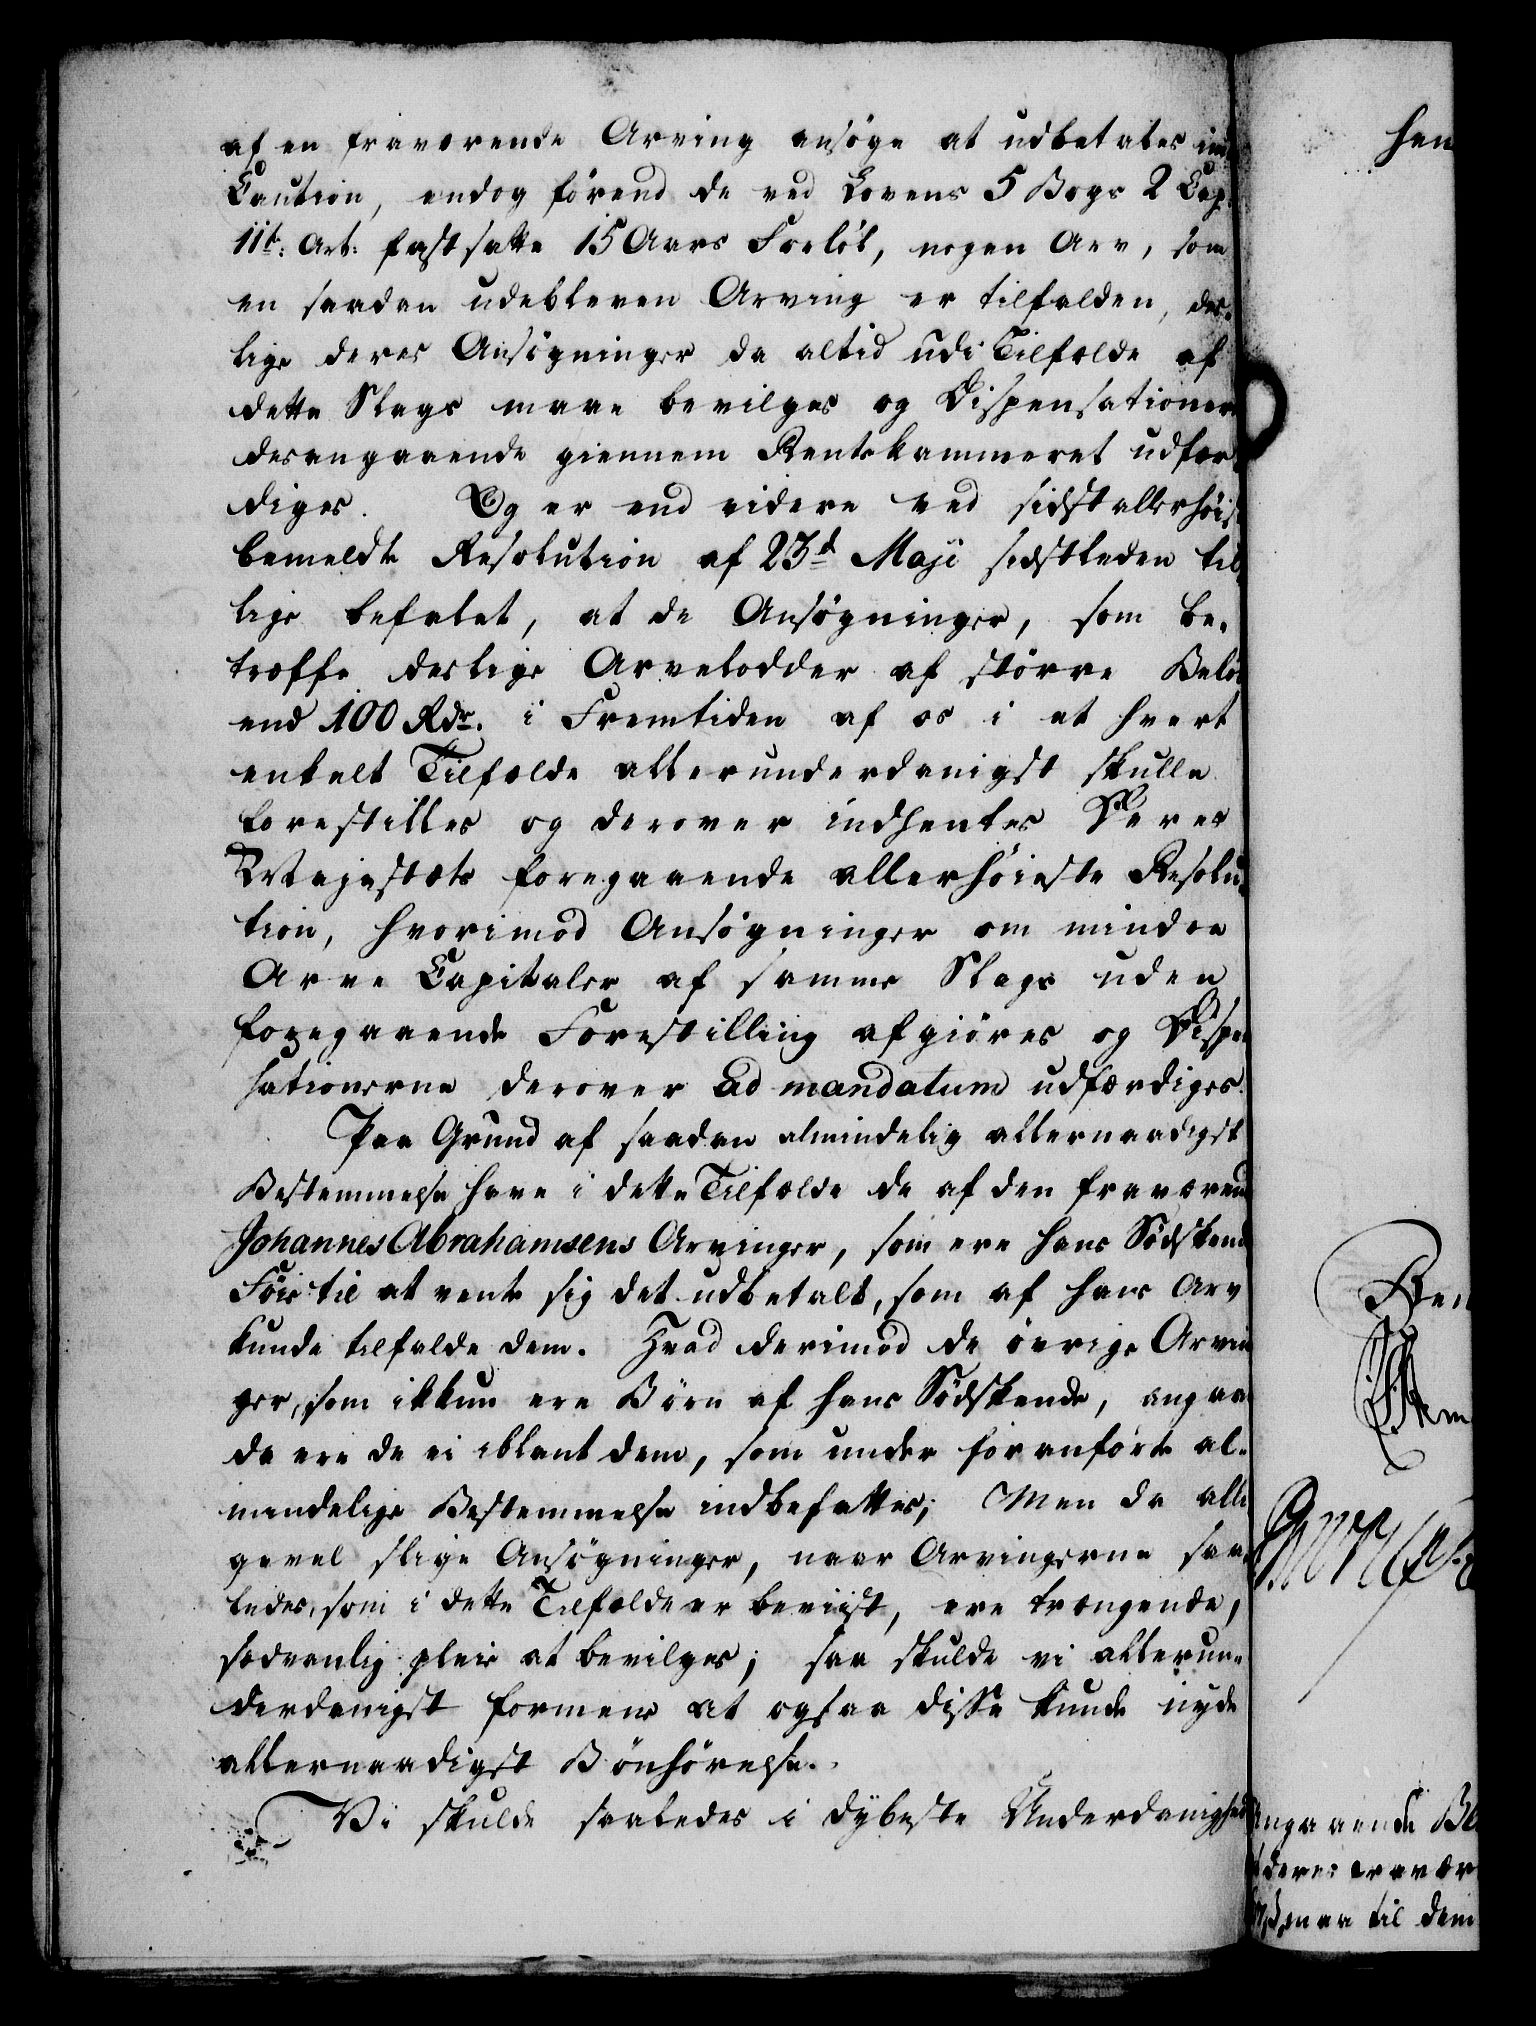 af en fraværende Arving ansøge at udbetales imod
Caution, endog førend de ved Lovens 5 Bogs 2 Cap:
11t: Art: fastsatte 15 Aars Forløb, nogen Arv, som
en saadan udebleven Arving er tilfalden, des-
lige deres Ansøgninger da altid udi Tilfælde af
dette Slags maae bevilges og Dispensationer
desangaaende giennem Rentekammeret udfær-
diges. Og er end videre ved sidst allerhøist
bemeldte Resolution af 23d Maji sidstleden til-
lige befalet, at de Ansøgninger, som be-
træffe deslige Arvelodder af større Beløb
end 100 Rdr. i Fremtiden af os i et hvert
enkelt Tilfælde allerunderdanigst skulle
forestilles og derover indhentes Deres
Majestæts foregaaende allerhøieste Resolu-
tion, hvorimod Ansøgninger om mindre
Arve Capitaler af samme Slags uden
foregaaende Forestilling afgiøres og Dispen
sationerne derover ad mandatum udfærdiges.
Paa Grund af saadan almindelig allernaadigst
Bestemmelse have i dette Tilfælde de af den fraværende
Johannes Abrahamsens Arvinger, som ere hans Sødskende
Føie til at vente sig det udbetalt, som af hans Arv
kunde tilfalde dem. Hvad derimod de øvrige Arvin
ger, som ikkun ere Børn af hans Sødskende, angaae
da ere de ei iblant dem, som under foranførte al-
mindelige Bestemmelse indbefattes; Men da alli
gevel slige Ansøgninger, naar Arvingerne saa-
ledes, som i dette Tilfælde er beviist, ere trængende,
sædvanlig pleie at bevilges; saa skulde vi allerun-
derdanigst formene at ogsaa disse kunde nyde
allernaadigst Bønhørelse.
Vi skulde saaledes i dybeste Underdanighed
hen
Ren
angaaende Be
deres fravær
til dem